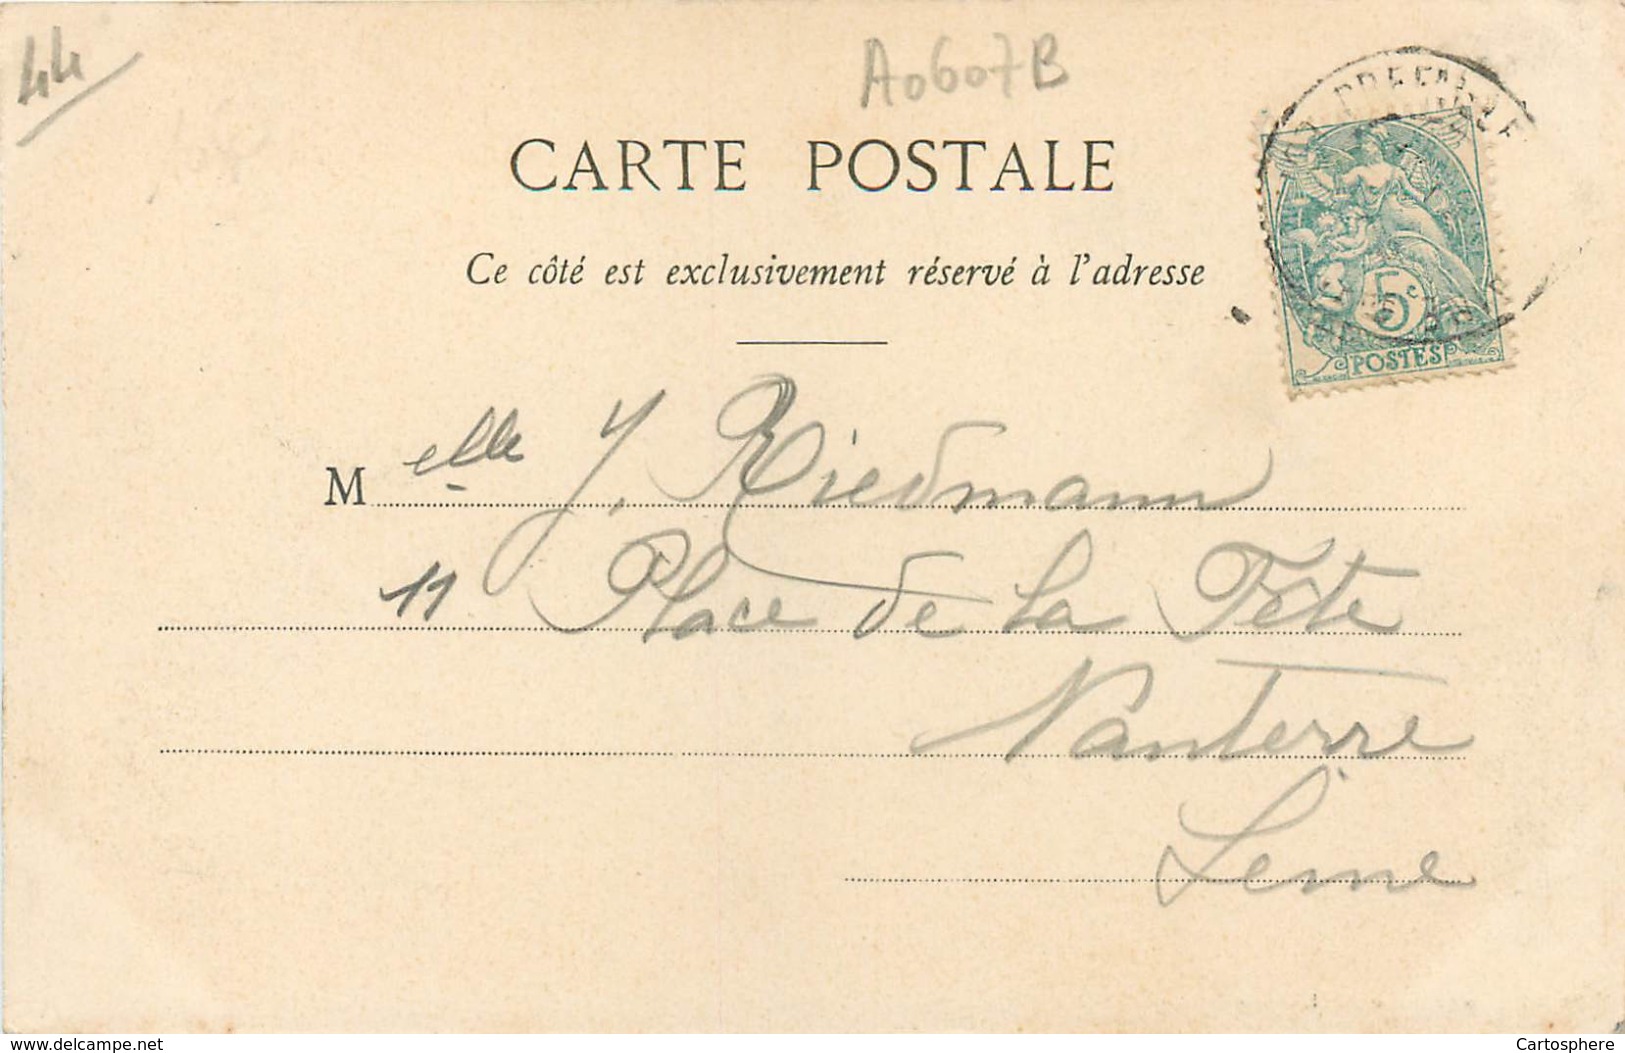 44
A0607B
CARTE POSTALE
Ce côté est exclusivement réservé à l'adresse
5c
POSTES
Melle J. Riedmann
11 Place de la Fête
Nanterre
Seine
www.delcampe.net
Cartosphere